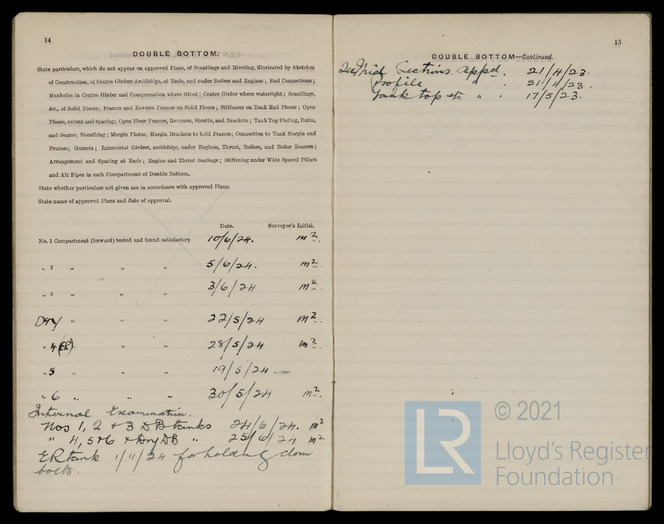 14
DOUBLE BOTTOM.
State particulars, which do not appear on approved Plans, of Scantlings and Riveting, illustrated by Sketches
of Construction, of Centre Girders Amidships, at Ends, and under Boilers and Engines; Rod Connections;
Manholes in Centre Girders and Compensation where fitted; Centre Girders where watertight; Scantlings,
&c., of Solid Floors; Frames and Reverse Frames on Solid Floors; Stiffeners on Tank End Floors; Open
Floors, extent and spacing; Open Floor Frames, Reverses, Struts, and Brackets; Tank Top Plating, Butts,
and Seams; Sheathing; Margin Plates; Margin Brackets to hold Frames; Connection to Tank Margin and
Frames; Gussets; Intercostal Girders, amidships, under Engines, Thrust, Boilers, and Boiler Bearers;
Arrangement and Spacing at Ends; Engine and Thrust Seatings; Stiffening under Wide Spaced Pillars
and Air Pipes in each Compartment of Double Bottom.
State whether particulars not given are in accordance with approved Plans.
State name of approved Plans and date of approval.
Date. Surveyor's Initial.
No. 1 Compartment (forward) tested and found satisfactory 10/6/24. m2.
„ 2 „ „ „ 5/6/24. m2.
„ 3 „ „ „ 3/6/24 m2.
Dry „ „ „ 22/5/24 m2.
„ 4 (ER). „ „ 28/5/24 m2.
„ 5 „ „ „ 19/5/24 —
„ 6 „ „ „ 30/5/24 m2.
Internal Examination.
Nos 1, 2 & 3 DB tanks 24/6/24. m2
„ 4, 5 & 6 & Dry DB „ 25/6/24 m2
ER tank 1/11/24 for holding down
bolts.
15
DOUBLE BOTTOM—Continued.
Mid Sections appd. 21/4/23.
Profile „ 21/4/23.
Tank top etc „ 17/5/23.
© 2021
LR
Lloyd's Register
Foundation